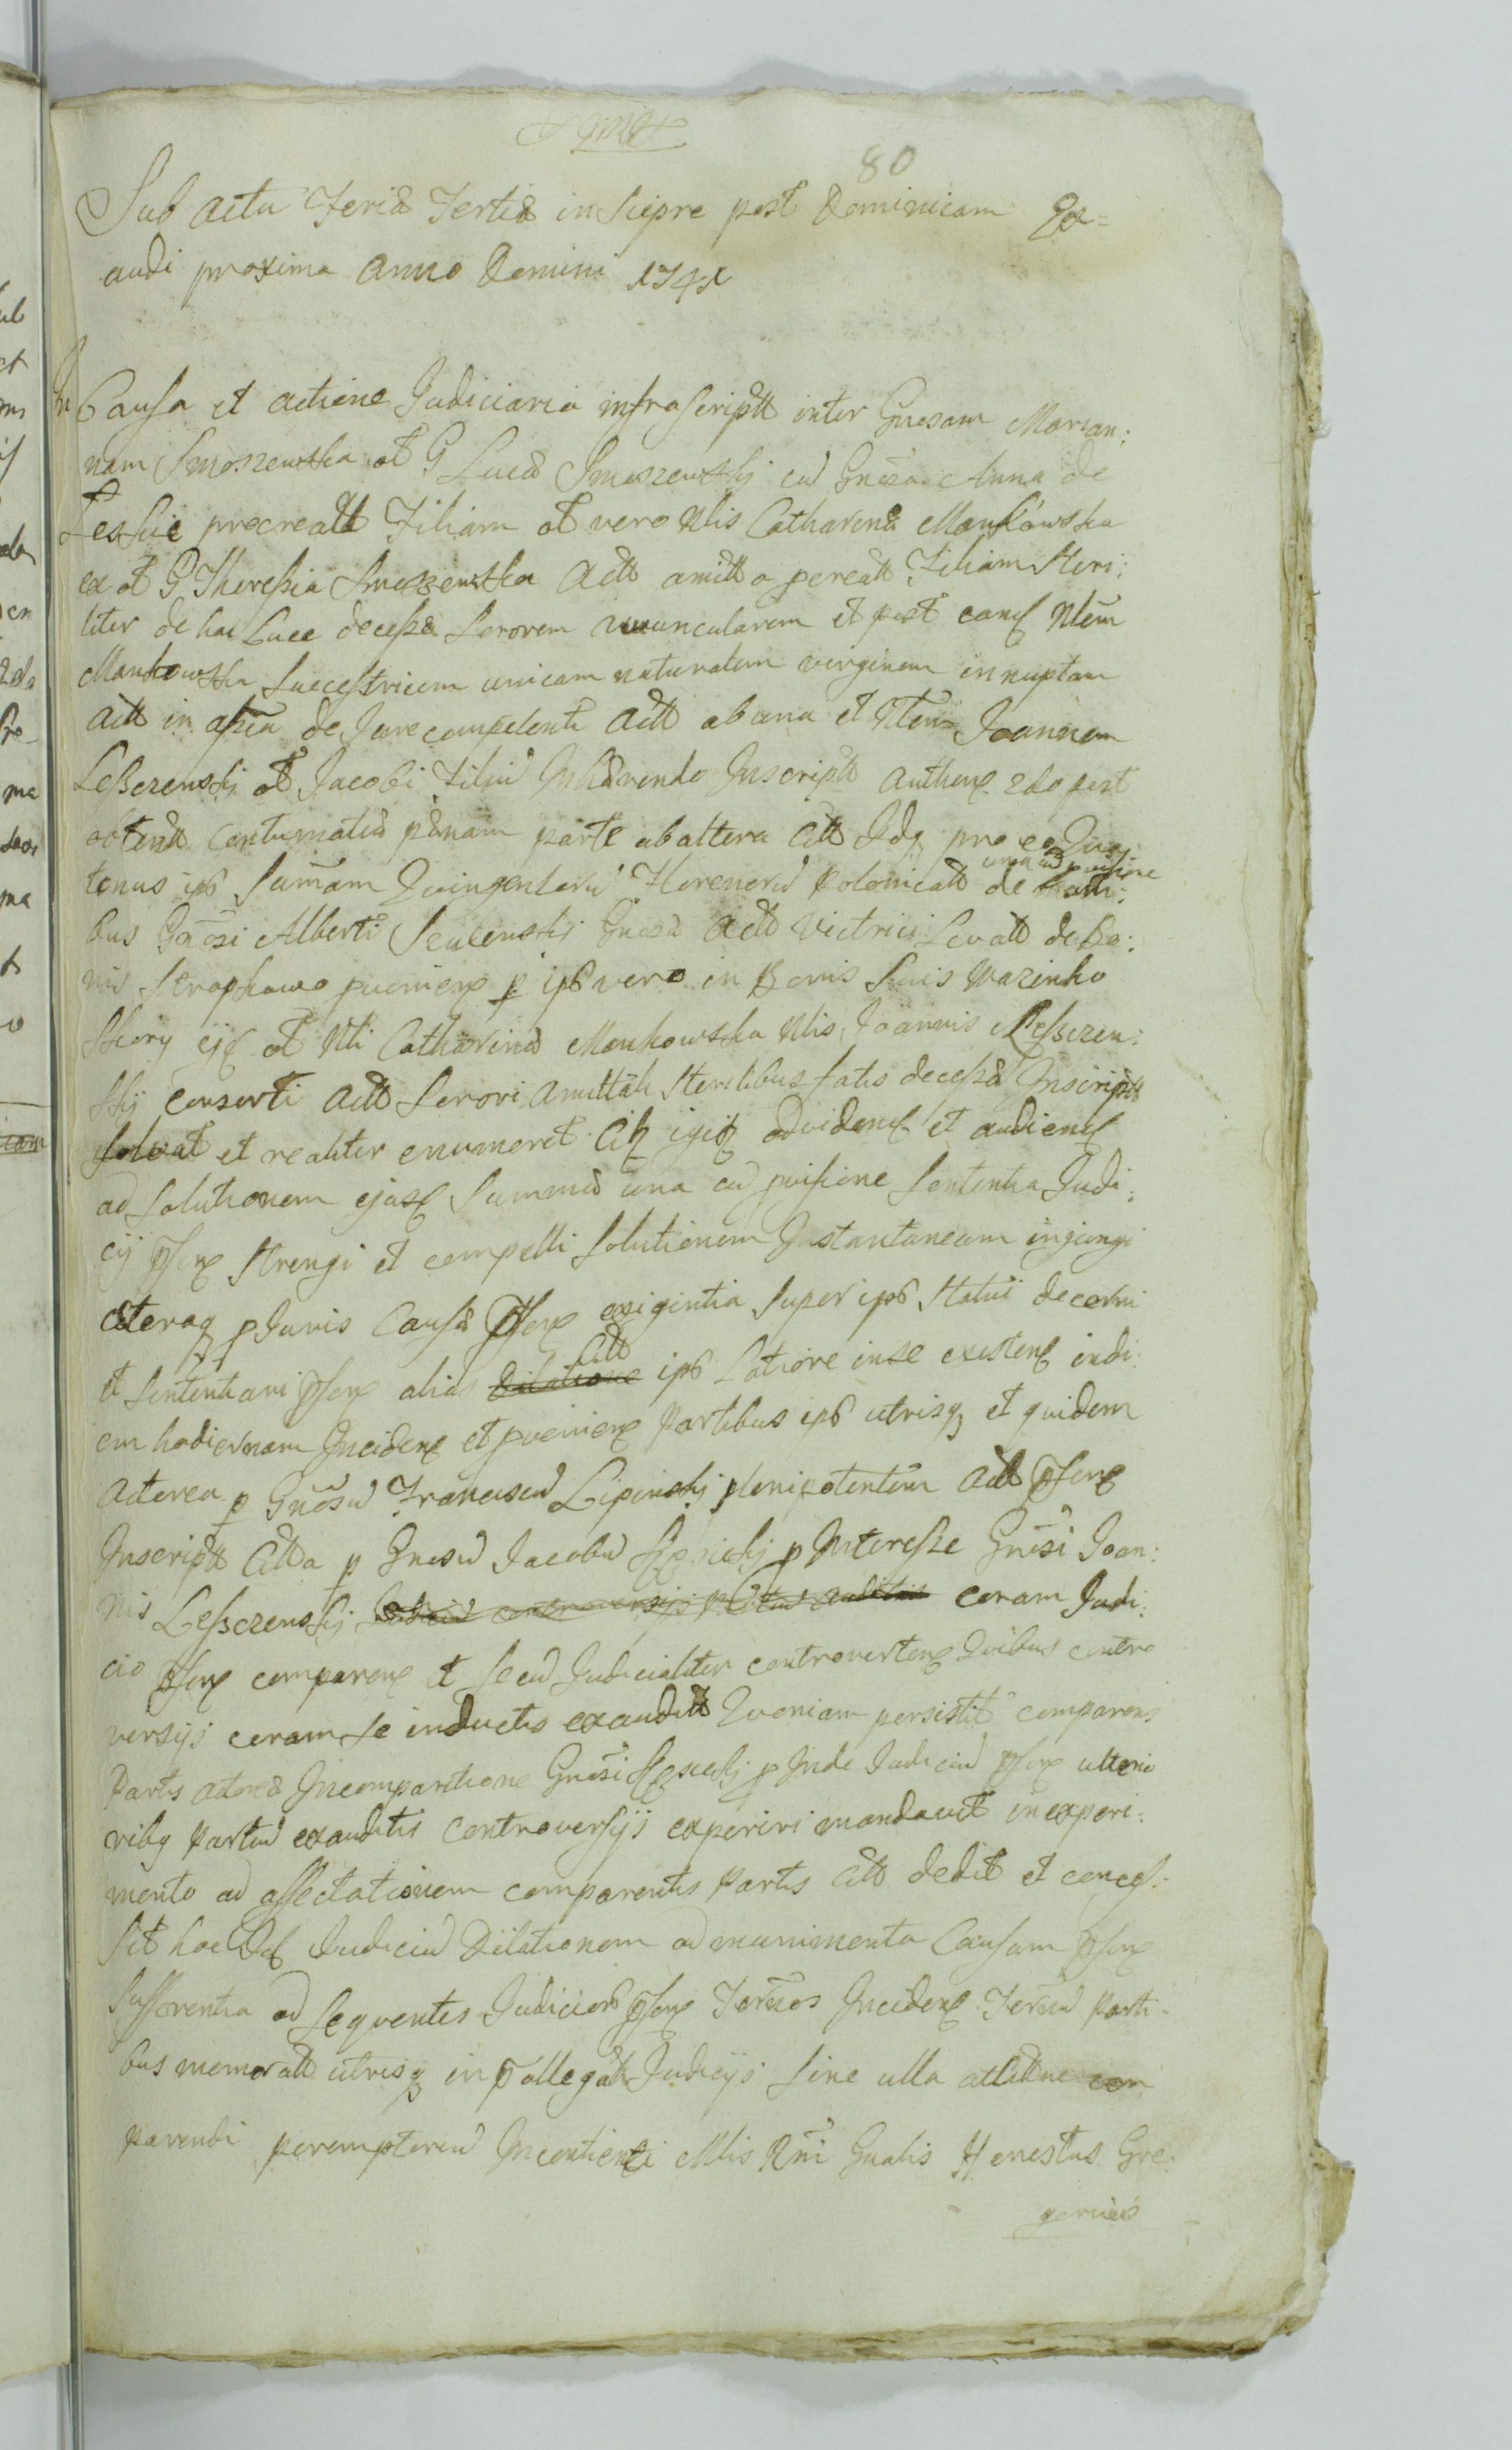 80
Sub Actu Feria Tertia in Sciepre post Dominicam Ex=
audi proxima Anno Domini 1741
In Causa et actione Judiciaria infrascriptt inter Gnosam Marian:
nam Smoszewska ol G Luca Smoszewskj cu Gnosa Anna de
procreatt Filiam ol vero Nlis Catharina Mankowska
ex ol G Theressia Smoszewska Actt amitt a pcreatt Filiam Steri:
liter de hac Luce decessa Sororem avuncularem et post eamq Nlem
Mankowska Successtricem unicam naturalem virginem innuptam
Actt in assia de Jure competenti Actt ab una et Nlem Joannem
Lesszczenskj ol Jacobi Filiu Inhærendo Inscriptt
obtentt Contumatiæ pænam parte ab altera Citt Idq pro eo Qua:
tenus ips Summam Quingentoru Florenoru Polonicatt de
una cu pvisione
bus Gnosi Alberti Gnosa Actt Victrici Levatt de Bo:
nis pvenienx p ips vero in Bonis Suis Wazinko
ol Nli Catharina Mankowska Nlis Joannis Lesszczen:
skj Consorti Actt Sorori Amittali Sterilibus fatis decessa Inscriptt
solvat et realiter enumeret Citt igitq ad videnq et audienq
ad Solutionem ejasq Summa una cu pvisione Sententia Judi:
cij psenx Strengi et compelli Solutionem Instantaneam injungi
cæteraq p Juris Causa psenx exigentia super ips Statui decerni
et Sententiari psenx alias Dilatione Citt ips Latiore in se existenx in di:
em hodiernam Incidenx et pvenienx Partibus ips utrisq et quidem
Actorea p Gnosu Franciscu Lipinskj plenipotentem Actt psenx
Inscriptt Citta p Gnosu Jacobu p Interesse Gnosi Joan:
nis Lesszczenskj coram Judi:
cio psenx comparenx et Se cu Judicialiter controvertenx Quibus contro
versijs coram Se inductis exauditt Quoniam persistit comparens
Partis Actorea Incomparitione Gnosi p Inde Judiciu psenx ulterio
ribq Partiu exauditis Controversijs experiri mandavit in experi:
mento ad affectationem comparentis Partis Citt dedit et conces:
sit hoc Idq Judiciu Dilationem ad munimenta Causam psenx
Sufferentia ad Sequentes Judicior psenx Termos Incidenx Termu Parti-
bus memoratt utrisq in pallegatt Judicijs Sine ulla com
parendi peremptoriu Incontienti Mlis Rni Gnalis Honestus Gre:
gorius